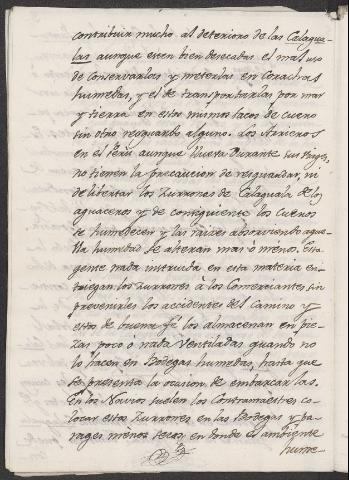 contribuir mucho al deterioro de las Calagua-
las aunque esten bien desecadas el mal uso
de Conservarlas y meterlas en Corachas
humedas, y el de transportarlas por mar
y tierra en estos mismos sacos de cuero
sin otro resguardo alguno. Los Arrieros
en el Perú aunque llueva Durante sus viages,
no tienen la precaucion de resguardar, ni
de libertar los Zurrones de Calaguala de los
aguaceros y de consiguiente los cueros
se humedecen y las raices absorviendo aque-
lla humedad se alteran mas ó menos. Esta
gente nada instruida en esta materia en-
triegan los Zurrones à los Comerciantes sin
prevenirles los accidentes del Camino y
estos de buena fé los almacenan en pie-
zas poco ó nada Ventiladas quando no
lo hacen en Bodegas humedas, hasta que
se presenta la ocasion de embarcarlas.
En los Navios suelen los Contramaestres co-
locar estos Zurrones en las Bodegas y pa-
rages menos secos en donde el ambiente
hume-